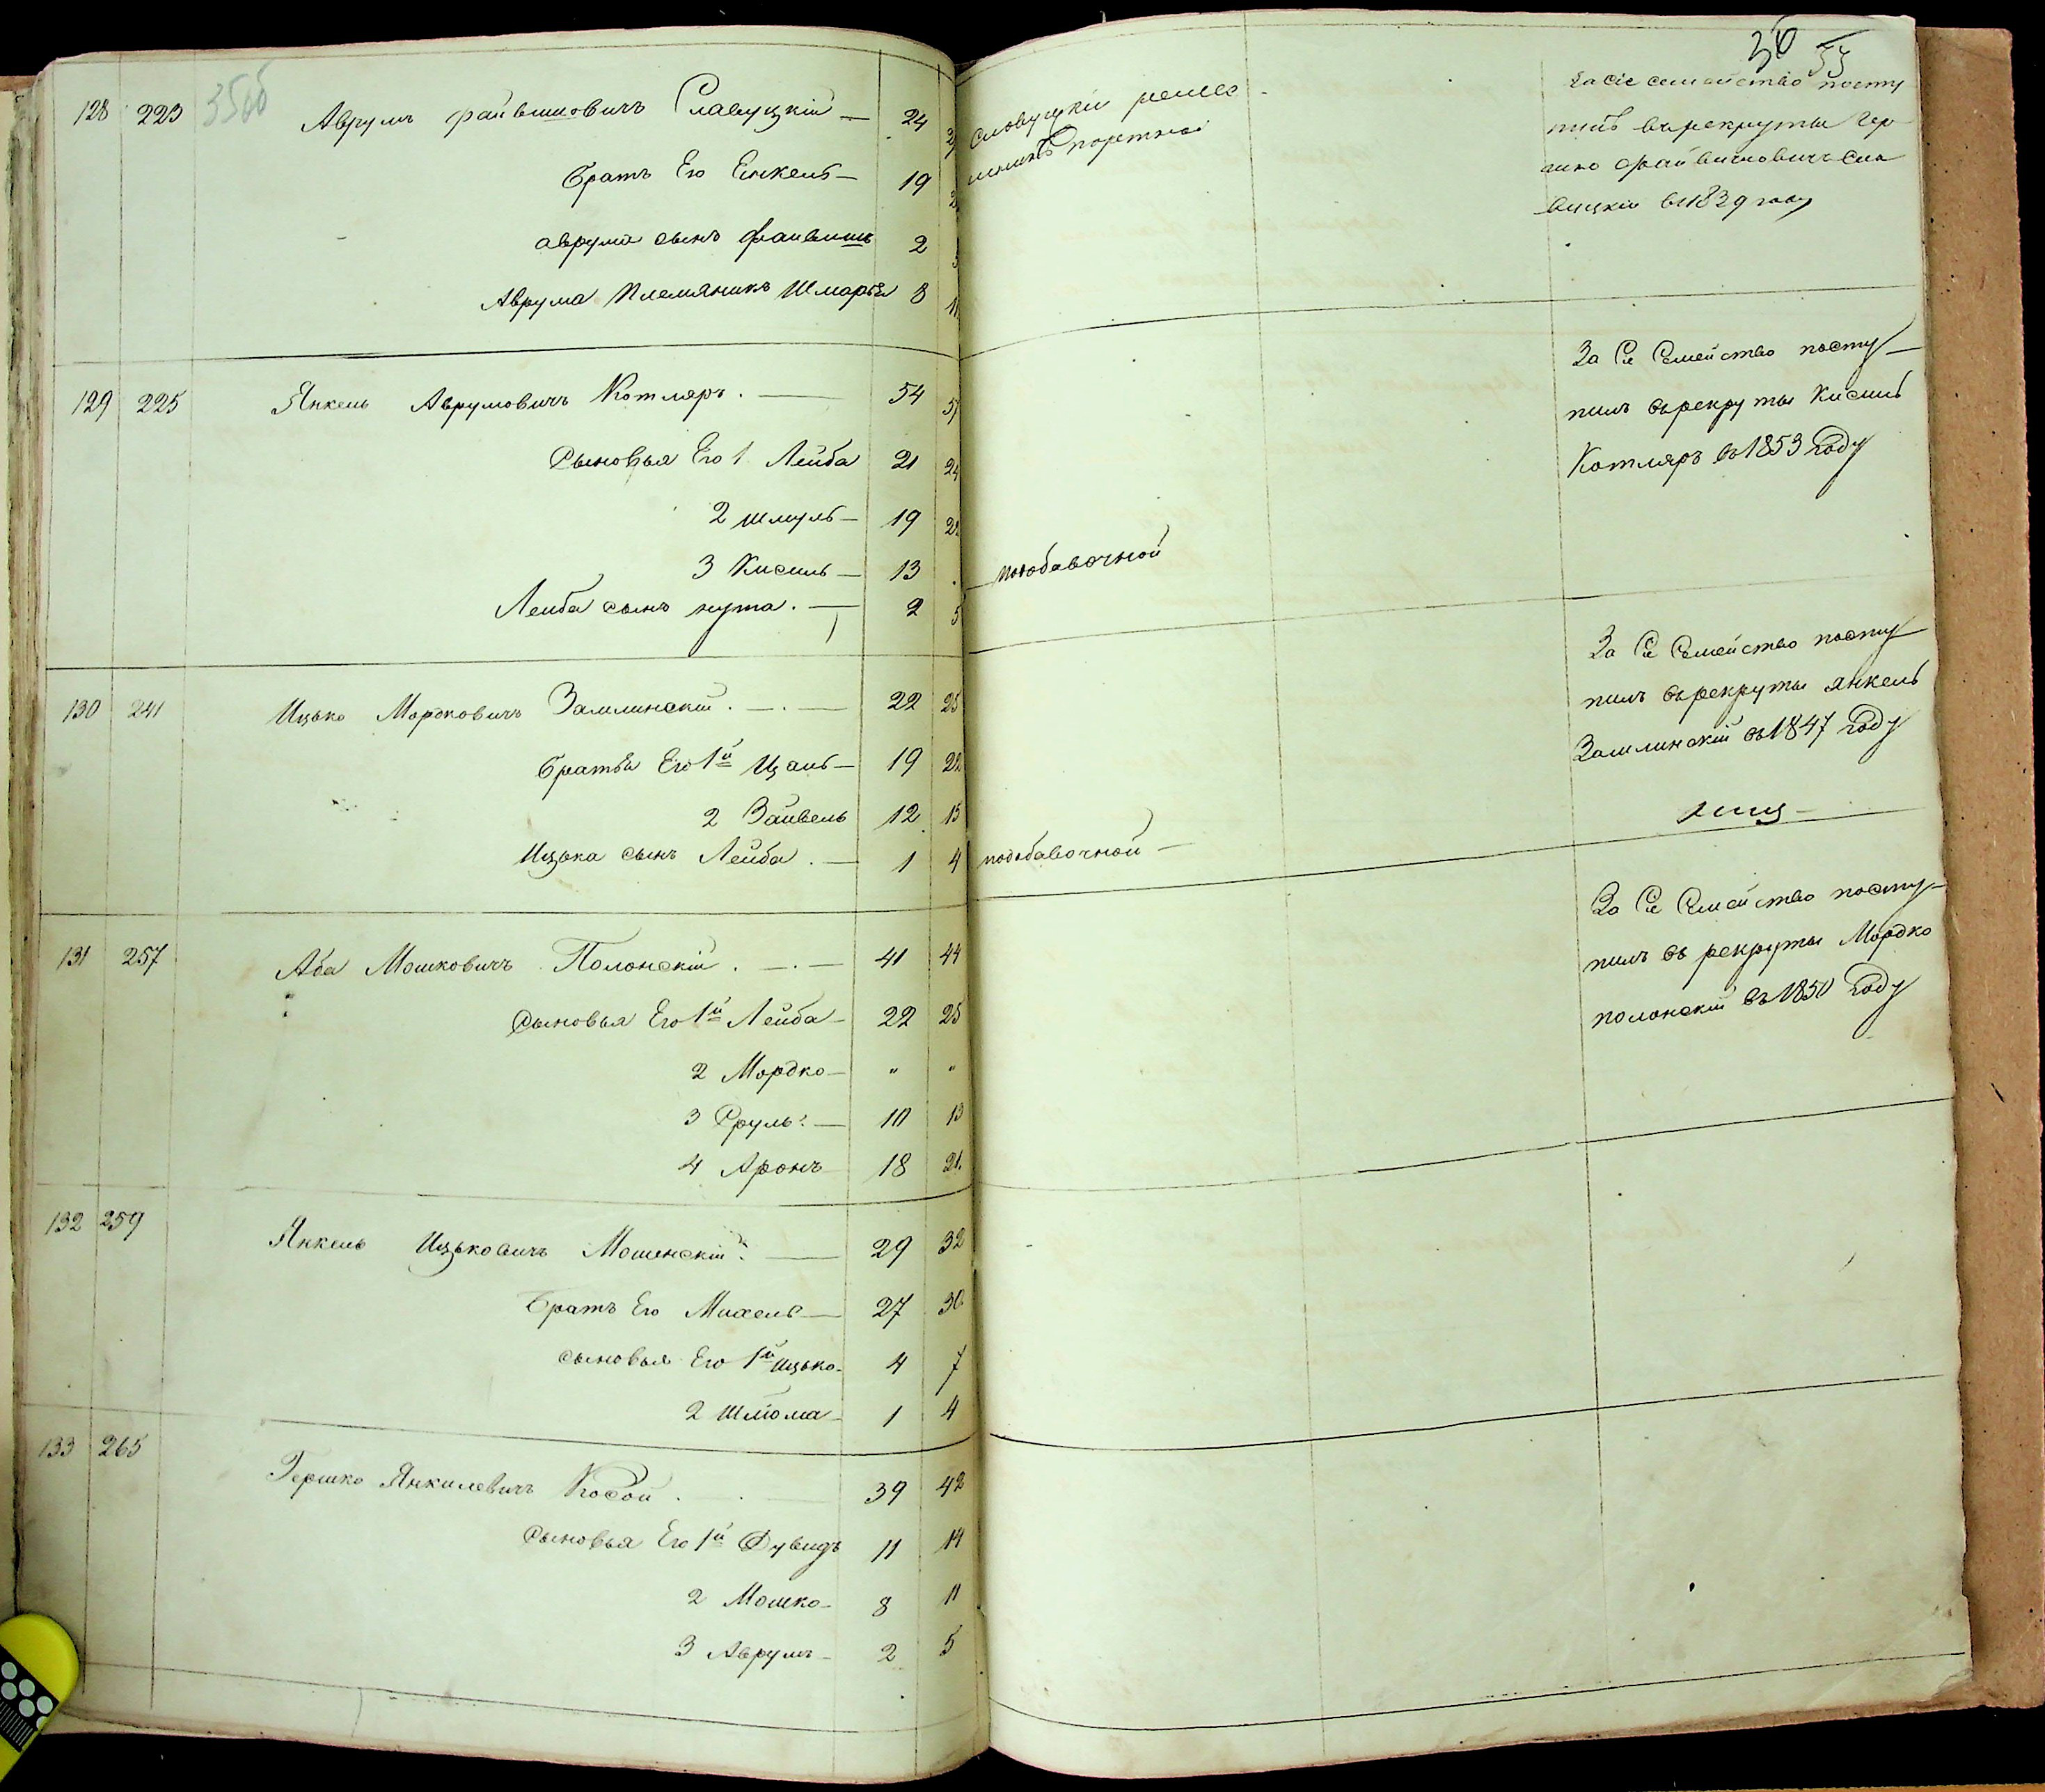 128 223 35об Аврумъ Файвишовичъ Славуцкій — 24
Братъ Его Енкель — 19
аврума сынъ Файвишъ 2
Аврума Племяникъ Шмарья 8
129 225 Янкель Аврумовичъ Котляръ. — 54 57
Сыновья Его 1 Лейба 21 24
2 Шмуль — 19 22
3 Кисиль — 13
Лейба сынъ нута. — 2 5
130 241 Ицько Мордковичъ Замлинскій. — 22 25
Братья Его 1й Ицаль — 19 22
2 Зайвель 12 15
Ицька сынъ Лейба. — 1 4
131 257 Аба Мошковичъ Полонскій. — 41 44
Сыновья Его 1й Лейба — 22 25
2 Мордко — " "
3 Сруль — 10 13
4 Аронъ 18 21
132 259 Янкель Ицьковичъ Мошенскій. — 29 32
Братъ Его Михель — 27 30
сыновья Его 1й Ицько — 4 7
2 Шлйома — 1 4
133 265 Гершко Янкилевичъ Косой. — 39 42
Сыновья Его 1й Дувидъ 11 14
2 Мошко — 8 11
3 Аврумъ — 2 5
36
Славуцкій
портной
За сіе семейство посту
пилъ върекруты Гер
шко Файвишовичъ Сла
вуцкій въ 1839 году
За Сіе Семейство посту—
пилъ върекруты Кисиль
Котляръ въ 1853 Году
подобавочной
За Сіе Семейство посту
пилъ върекруты янкель
Замлинскій въ 1847 Году
подобавочной —
За Сіе Семейство посту—
пилъ въ рекруты Мордко
полонскій въ 1850 Году